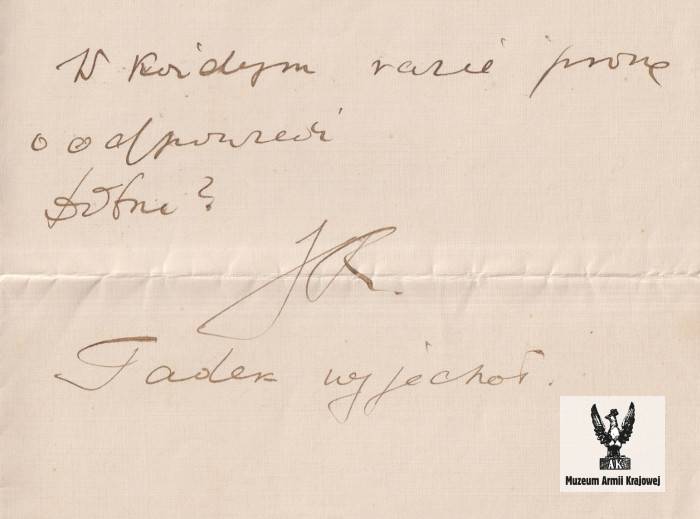 W każdym razie proszę
o odpowiedź
JR.
Tadek wyjechał.
AK
Muzeum Armii Krajowej